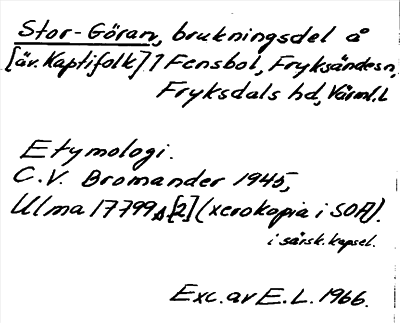 Stor-Göran, brukningsdel å
[äv. Kaptifolk] 1 Fensbol, Fryksändesn,
Fryksdals hd, Värml.L
Etymologi.
C.V. Bromander 1945,
Ulma 17799 A [2] (xerokopia i SOA).
i särsk. kapsel.
Exc. av E.L. 1966.